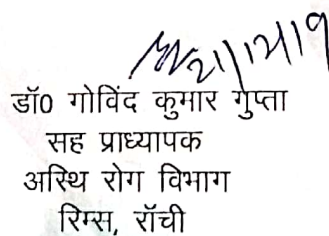 21/12/19
डॉ0 गोविंद कुमार गुप्ता
सह प्राध्यापक
अस्थि रोग विभाग
रिम्स, रॉची